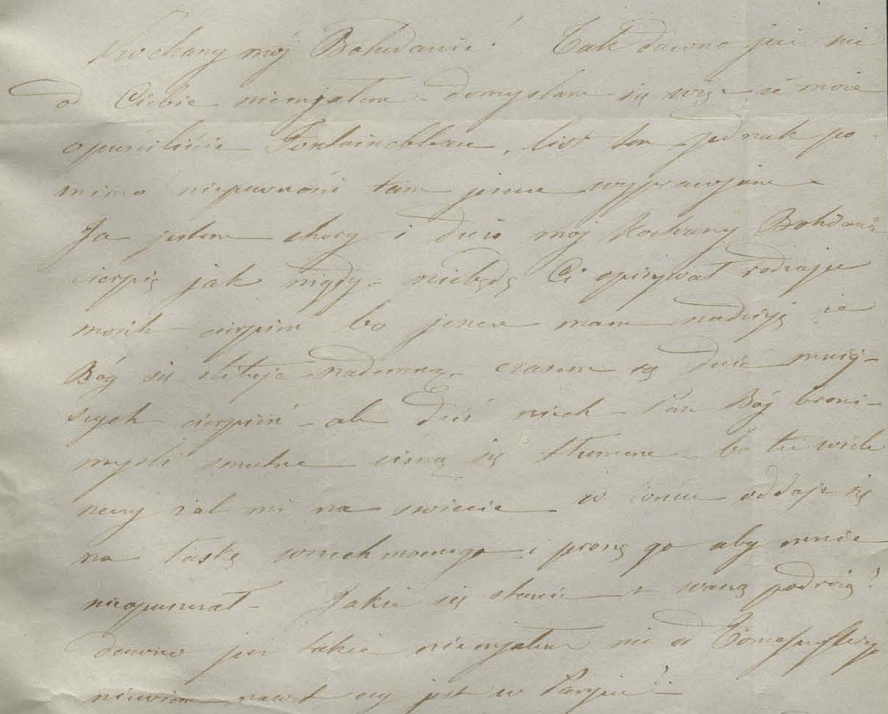 Kochany mój Bohdanie! Tak dawno już nic
od Ciebie niemiałem – domyślam się więc że może
opuściliście Fontainebleau, list ten jednak po-
mimo niepewności tam jeszcze wyprawiam –
Ja jestem chory i dziś mój Kochany Bohdanie
cierpię jak nigdy – niebędę Ci opisywał rodzaju
moich cierpień bo jeszcze mam nadzieję że
Bóg się zlituje nademną, czasem są dnie mniej-
szych cierpień – ale dziś niech Pan Bóg broni –
myśli smutne cisną się tłumem – bo tu wiele
rzeczy żal mi na świecie – w końcu oddaję się
na łaskę wszechmocnego i proszę go aby mnie
nieopuszczał – Jakże się stanie z waszą podróżą!
dawno już także niemiałem nic od
niewiem nawet czy jest w Paryżu! –